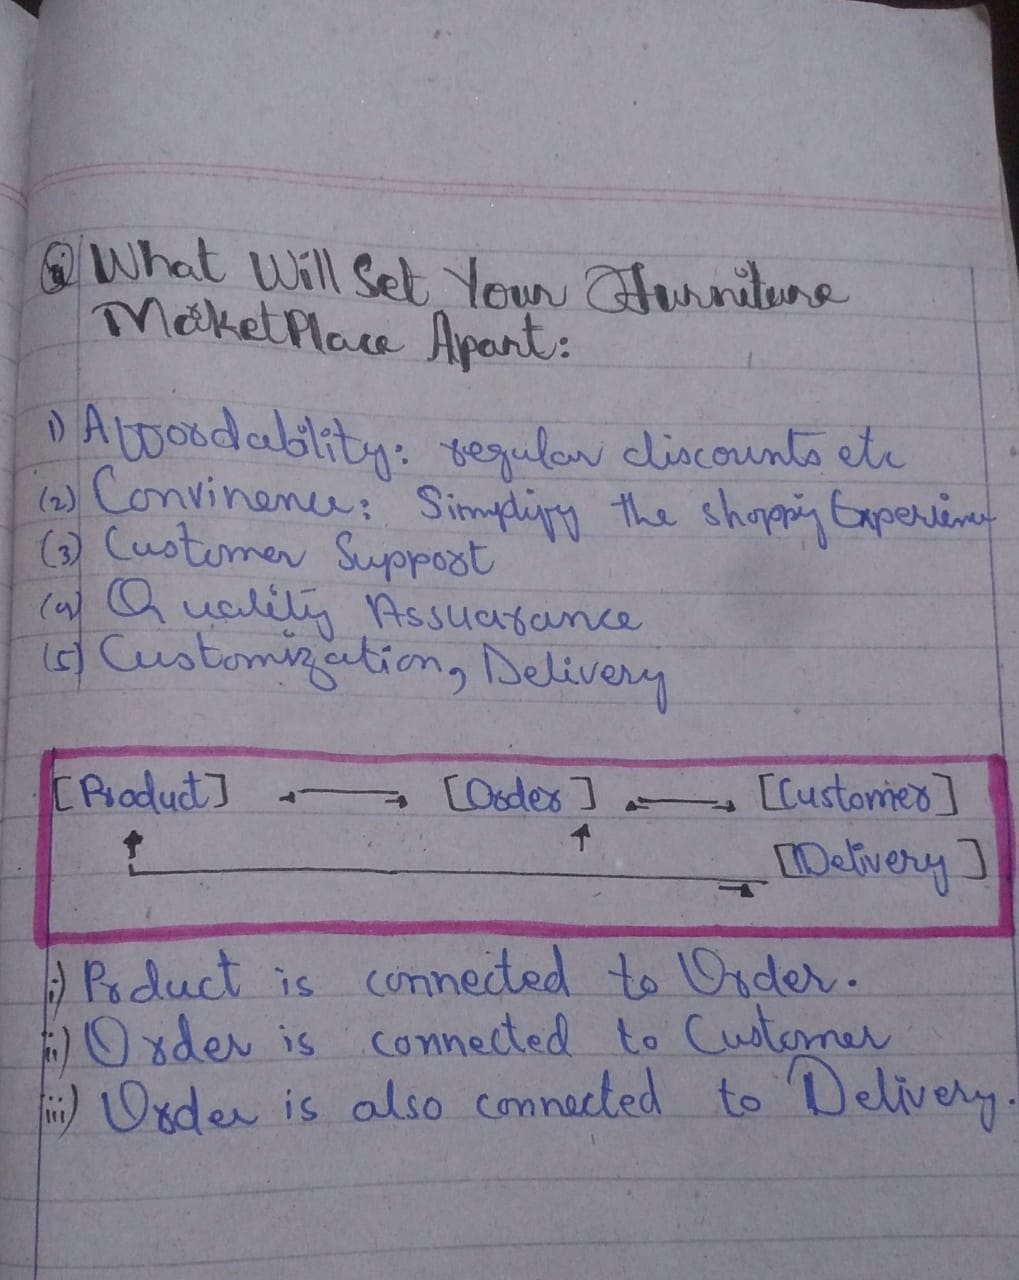 What Will Set Your Furniture
MarketPlace Apart:
1) Affordability: regular discounts etc
(2) Convinence: Simplify the shopping Experience
(3) Customer Support
(4) Quality Assuarance
(5) Customization, Delivery
[Product] [Order] [Customer]
[Delivery]
i) Product is connected to Order.
ii) Order is connected to Customer
iii) Order is also connected to Delivery.